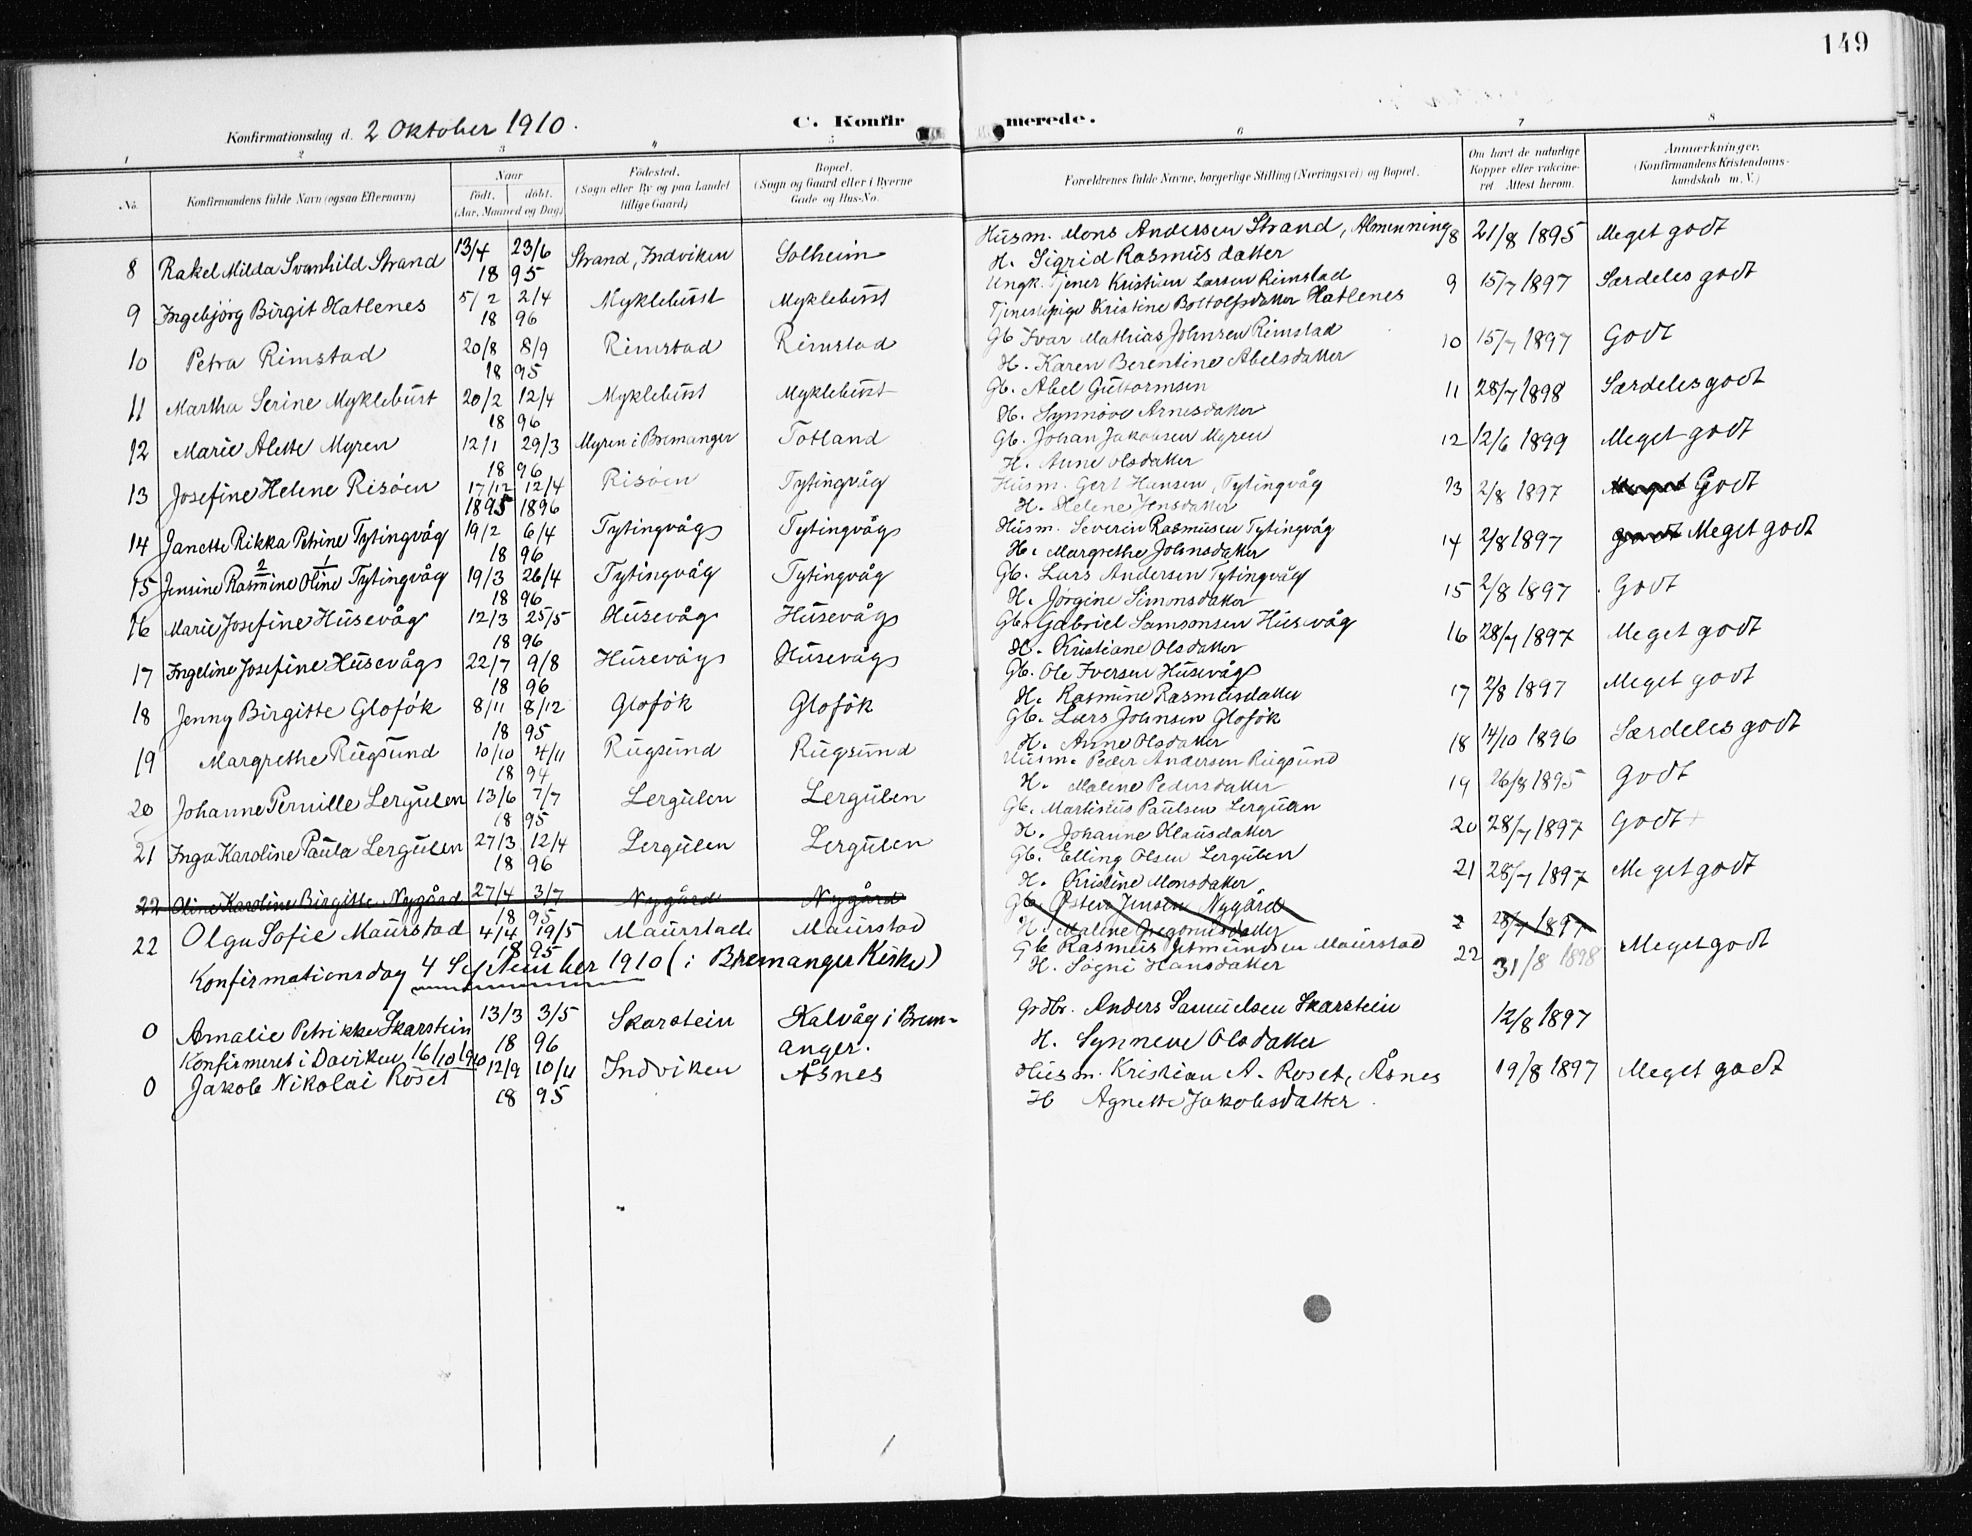 149
Konfirmationsdag d. 2 Oktober 1910.
C. Konfirmerede.
1 2 3 4 5 6 7 8
No. Konfirmandens fulde Navn (ogsaa Efternavn) Naar født. døbt. (Aar, Maaned og Dag) Fødested. (Sogn eller By og paa Landet tillige Gaard) Bopæl. (Sogn og Gaard eller i Byerne Gade og Hus-No. Forældrenes fulde Navne, borgerlige Stilling (Næringsvei) og Bopæl. Om havt de naturlige Kopper eller vakcineret Attest herom. Anmærkninger. (Konfirmandens Kristendomskundskab m. V.)
8 Rakel Milda Svanhild Strand 13/4 23/6 18 95 Strand, Indviken Solheim Husm. Mons Andersen Strand, Almenning 8 21/8 1895 Meget godt
H. Sigrid Rasmusdatter
9 Ingebjørg Birgit Hatlenes 5/2 2/4 18 96 Myklebust Myklebust Ungk. Tjener Kristian Larsen Rimstad 9 15/7 1897 Særdeles godt
Tjenestepige Kristine Boltolfsdatter Hatlenes
10 Petra Rimstad 20/8 8/9 18 95 Rimstad Rimstad Gb Ivar Mathias Johnsen Rimstad 10 15/7 1897 Godt
H. Karen Berentine Abelsdatter
11 Martha Serine Myklebust 20/2 12/4 18 96 Myklebust Myklebust Gb. Abel Guttormsen 11 28/7 1898 Særdeles godt
H. Synnøve Arnesdatter
12 Marie Alette Myren 12/1 29/3 18 96 Myren i Bremanger Totland Gb. Johan Jakobsen Myren 12 12/6 1899 Meget godt
H. Anne Olsdatter
13 Josefine Helene Risøen 17/12 12/4 1895 1896 Risøen Tytingvåg Husm. Gert Hansen, Tytingvåg 13 2/8 1897 Meget Godt
H. Helene Jensdatter
14 Janette Rikka Petrine Tytingvåg 19/2 6/4 18 96 Tytingvåg Tytingvåg Husm. Severin Rasmusen Tytingvåg 14 2/8 1897 godt Meget godt
H. Margrethe Johnsdatter
2 1
15 Jensine Rasmine Oline Tytingvåg 19/3 26/4 18 96 Tytingvåg Tytingvåg Gb. Lars Andersen Tytingvåg 15 2/8 1897 Godt
H. Jørgine Simonsdatter
16 Marie Josefine Husevåg 12/3 25/5 18 96 Husevåg Husevåg Gb. Gabriel Samsonsen Husevåg 16 28/7 1897 Meget godt
H. Kristiane Olsdatter
17 Ingeline Josefine Husevåg 22/7 9/8 18 96 Husevåg Husevåg Gb. Ole Iversen Husevåg 17 2/8 1897 Meget godt
H. Rasmine Rasmusdatter
18 Jenny Birgitte Gloføk 8/11 8/12 18 95 Gloføk Gloføk Gb. Lars Johnsen Gloføk 18 14/10 1896 Særdeles godt
H. Anne Olsdatter
19 Margrethe Rugsund 10/10 4/11 18 94 Rugsund Rugsund Husm. Peder Andersen Rugsund 19 26/8 1895 Godt
H. Maline Pedersdatter
20 Johanne Pernille Lergulen 13/6 7/7 18 95 Lergulen Lergulen Gb. Martinus Paulsen Lergulen 20 28/7 1897 Godt
H. Johanne Klausdatter
21 Inga Karoline Paula Lergulen 27/3 12/4 18 96 Lergulen Lergulen Gb. Elling Olsen Lergulen 21 28/7 1897 Meget godt
H. Kristine Monsdatter
22 Oline Karoline Birgitte Nygård 27/4 3/7 18 95 Nygård Nygård Gb. Østen Jensen Nygård 28/7 1897
H. Maline Gregoriusdatter
22 Olga Sofie Maurstad 4/4 19/5 18 95 Maurstad Maurstad Gb Rasmus Meurstad 22 31/8 1898 Meget godt
H. Søgni Hansdatter
Konfirmationsdag 4 September 1910 (i Bremanger Kirke)
0 Amalie Petrikke Skarstein 13/3 3/5 18 96 Skarstein Kalvåg i Bremanger. Grdbr. Anders Samuelsen Skarstein 12/8 1897
H. Synneve Olsdatter
Konfirmeret i Daviken 16/10 1910
0 Jakob Nikolai Roset 12/9 10/11 18 95 Indviken Åsnes Husm. Kristian A. Roset, Åsnes 19/8 1897 Meget godt
H Agnette Jakobsdatter.